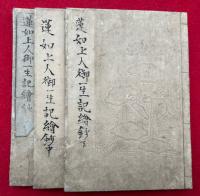 蓮如上人御一生記繪鈔下
蓮如上人御一生記繪鈔中
蓮如上人御一生記繪